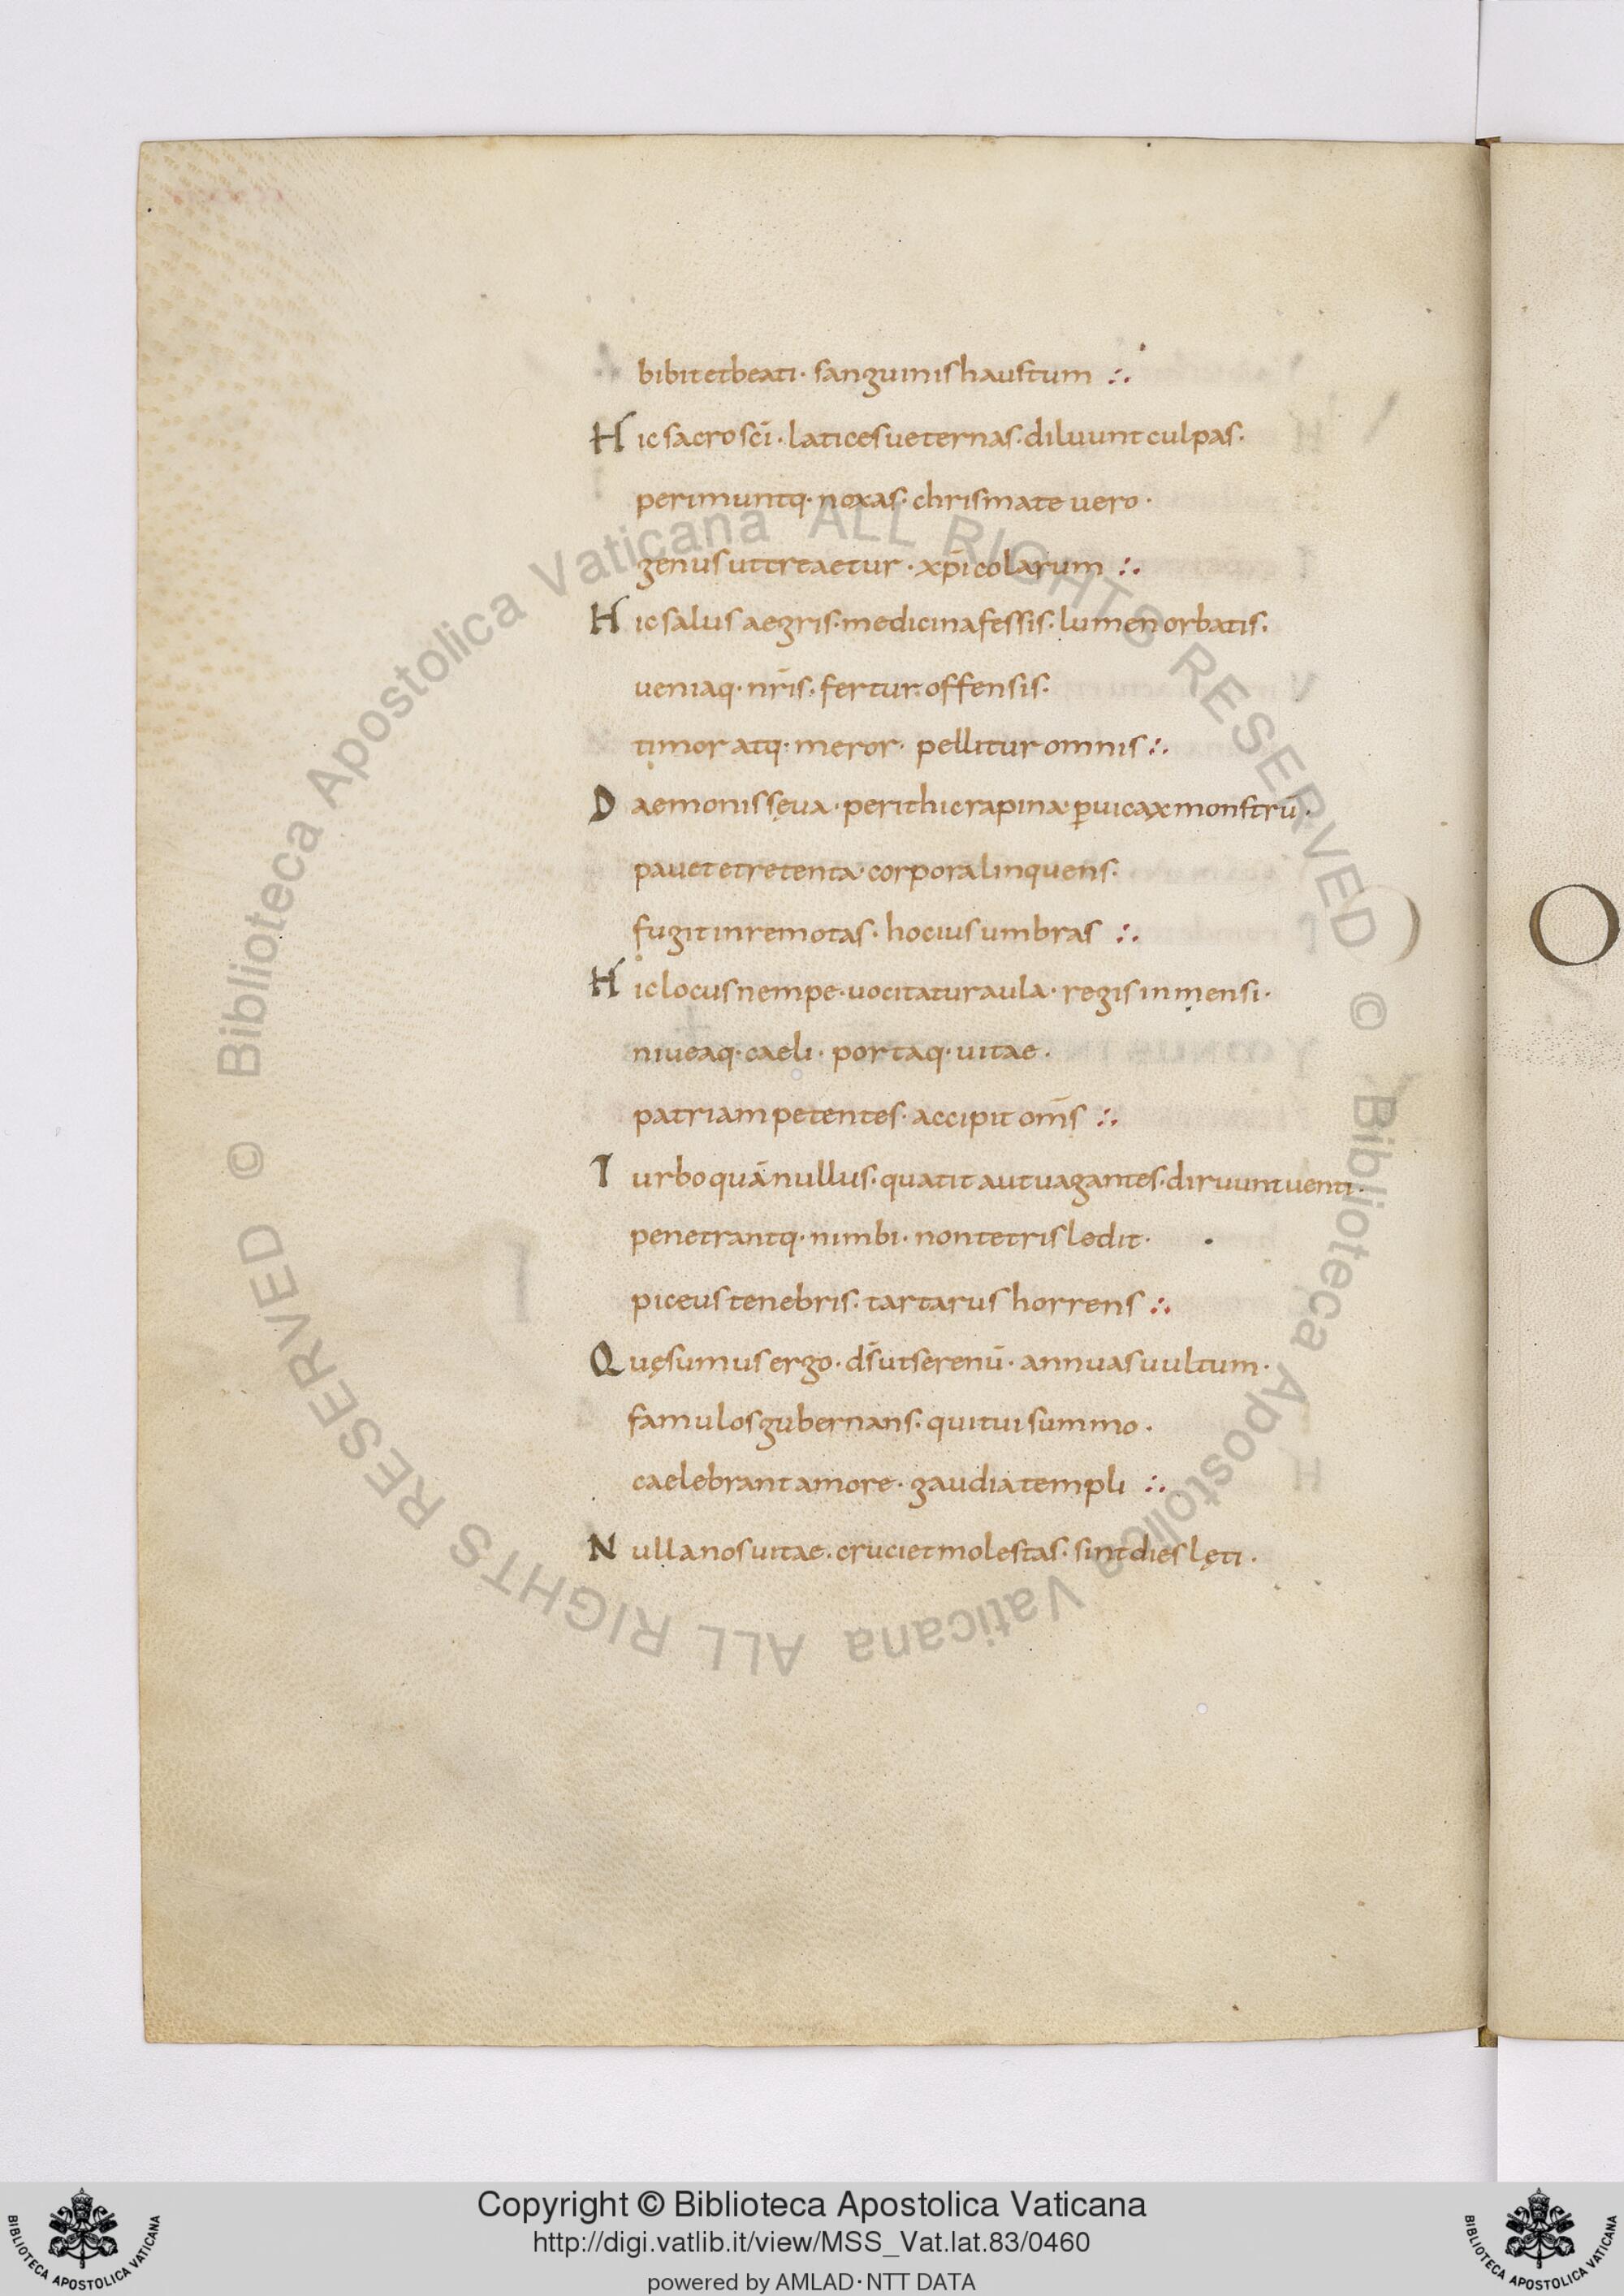 bibit et beati· sanguinis haustum ∴
Hic sacro sc̄i· latices ueternas· diluunt culpas·
perimuntq· noxas· chrismate uero·
genus ut creaetur· xp̄icolarum ∴
Hic salus aegris· medicina fessis· lumen orbatis·
ueniaq· nr̄is· fertur offensis·
timor atq· meror· pellitur omnis ∴
Daemonis sęua· perit hic rapina· ꝑuicax monstrū·
pauet et retenta· corpora linquens·
fugit in remotas· hocius umbras ∴
Hic locus nempe· uocitatur aula· regis inmensi·
niueaq· caeli· portaq· uitae·
patriam petentes· accipit om̄s ∴
Turbo quā nullus· quatit aut uagantes· diruunt uenti·
penetrantq· nimbi· non tetris ledit·
piceus tenebris· tartarus horrens ∴
Quęsumus ergo· d̄s ut serenū· annuas uultum·
famulos gubernans· qui tui summo·
caelebrant amore· gaudia templi ∴
Nulla nos uitae· cruciet molestas· sint dies lęti·
O
Biblioteca Apostolica Vaticana ALL RIGHTS RESERVED ©
Biblioteca Apostolica Vaticana ALL RIGHTS RESERVED ©
Copyright © Biblioteca Apostolica Vaticana
http://digi.vatlib.it/view/MSS_Vat.lat.83/0460
powered by AMLAD·NTT DATA
BIBLIOTECA APOSTOLICA VATICANA
BIBLIOTECA APOSTOLICA VATICANA